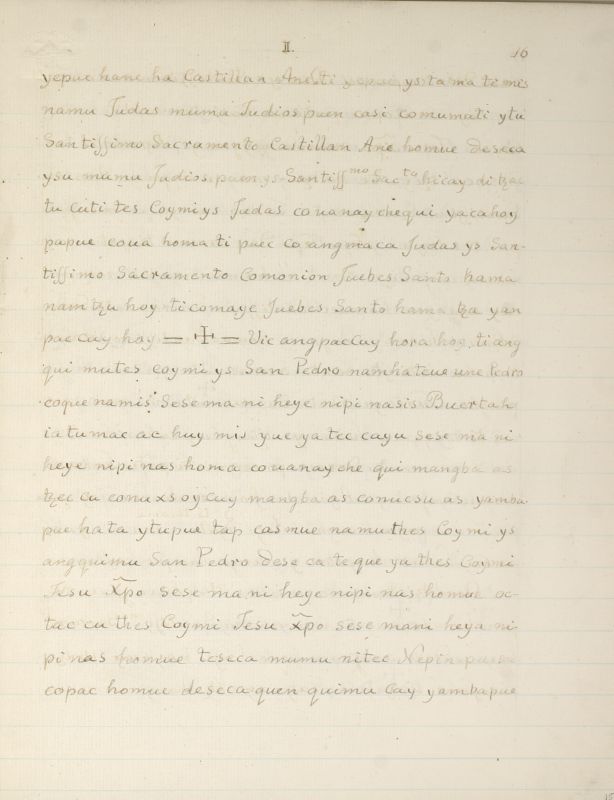 II.
16
yepue hanc ha Castillan Ane ti yepue ys ta ma ti mis
namu Judas mumu Judios puen casi comumati ytu
Santissimo Sacramento Castillan Ane homue deseca
ysu mumu Judios puen ys Santiss^mo Sac^to hicay di tzac
tu cuti tes Coymi ys Judas couanay chequi yacahoy
papue coua homa ti puec co angmaca Judas ys San-
tissimo Sacramento Comonion Juebes Santo hama
nam tzu hoy ti comaye Juebes Santo hama tza yan
pac cuy hoy = ☩ = Vic angpaccuy hora hoy, ti ang
qui mutes coymi ys San Pedro namhateue une Pedro
coque namis sese ma ni heye nipi nasis Buertah
iatumac ac huy mis yue ya tec cayu sese ma ni
heye nipi nas homa couanay che qui mangba as
tzec cu conuxsoycuy mangba as conucsu as yamba-
pue hata ytupue tap casmue namu thes Coymi ys
angquimu San Pedro dese ca te que ya thes Coymi
Jesu Xp̃o sese ma ni heye nipi nas homue oc-
tac cu thes Coymi Jesu Xp̃o sese mani heya ni-
pi nas homue teseca mumu nitec Nepin
copac homue deseca quen quimu cay yambapue